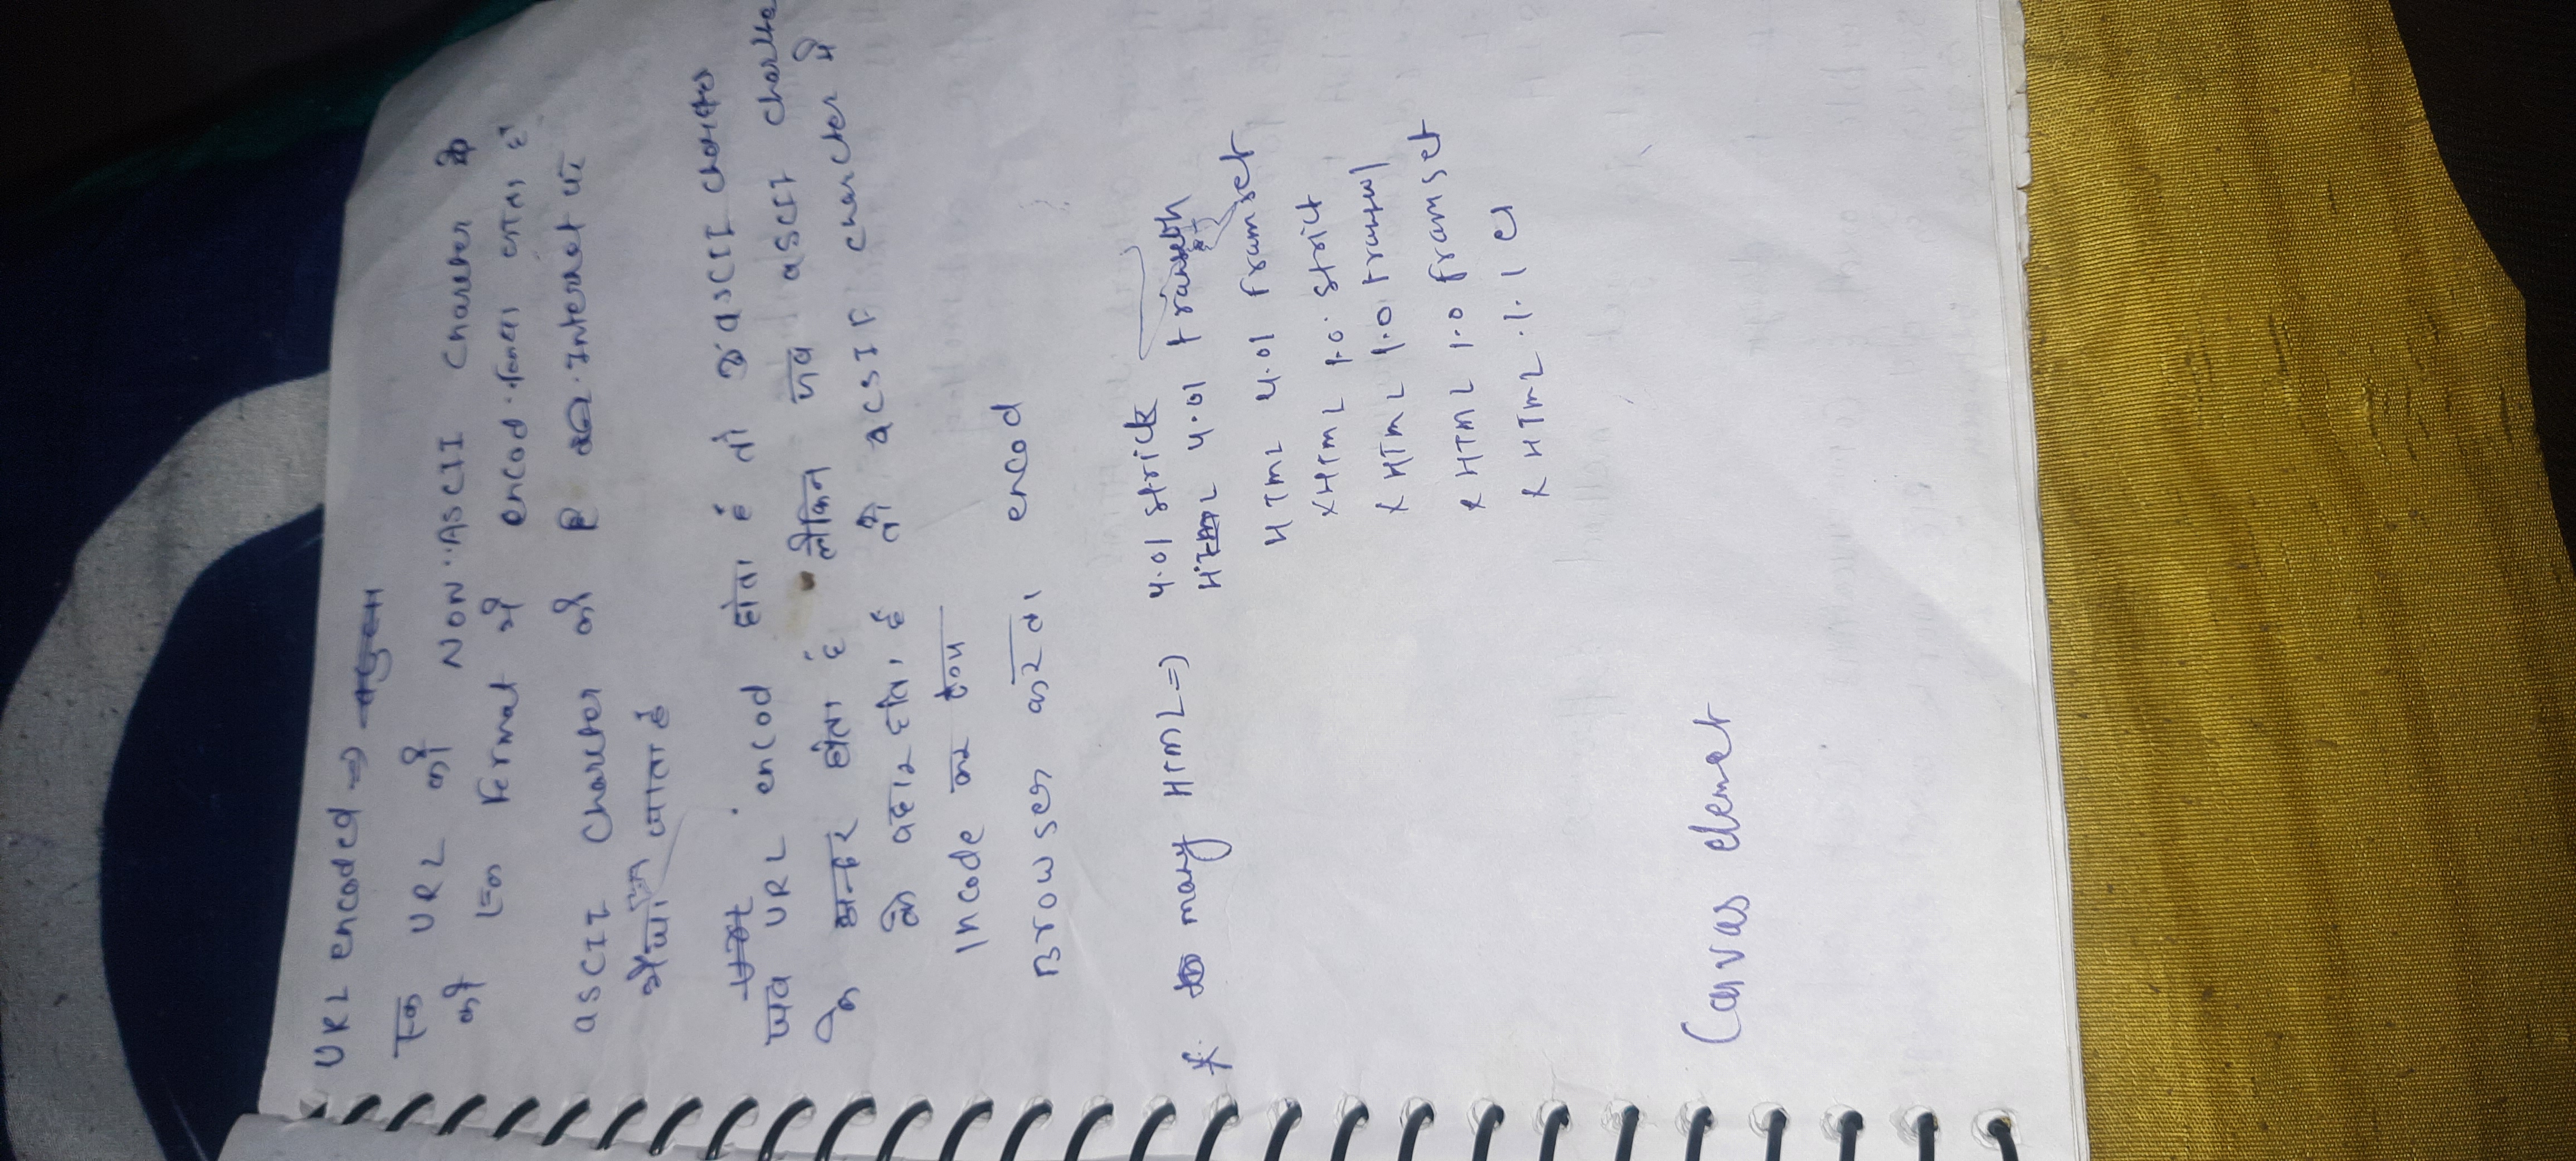 URL encoded ⇒
एक URL को NON-ASCII Charcter
को एक Format में encod किया जाता है
ASCII Charcter को Internet पर
भैजा जाता है
जब URL encod होता है तो ASCII Charcter
के अन्दर होता है लैकिन जब ASCII Charcter
के बहार होता है तो ACSII Charcter में
Incode कर देगा
Browser करता encod
* many HTML ⇒ 4.01 strict
HTML 4.01
HTML 4.01 Framset
XHTML 1.0 strict
XHTML 1.0
XHTML 1.0 framset
XHTML 1.1
Canvas elemet